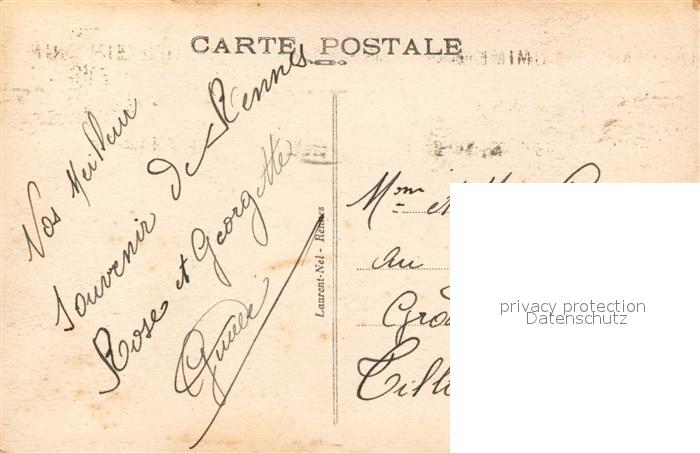 CARTE POSTALE
Vos Meilleur
Souvenir de Rennes
Rose et Georgette
Laurent-Nel - Rennes
Mme et
au
privacy protection
Datenschutz